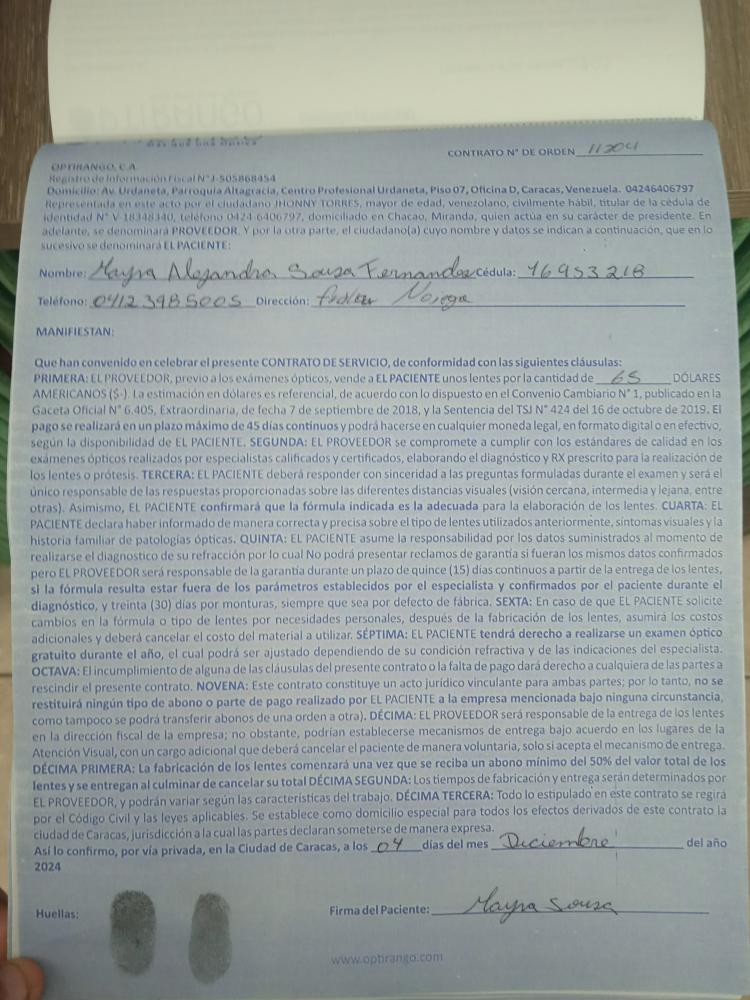 CONTRATO N° DE ORDEN 11204
OPTIRANGO, C.A.
Registro de Información Fiscal N° J-505868454
Domicilio: Av. Urdaneta, Parroquia Altagracia, Centro Profesional Urdaneta, Piso 07, Oficina D, Caracas, Venezuela. 04246406797
Representada en este acto por el ciudadano JHONNY TORRES, mayor de edad, venezolano, civilmente hábil, titular de la cédula de
identidad N° V-18348340, teléfono 0424-6406797, domiciliado en Chacao, Miranda, quien actúa en su carácter de presidente. En
adelante, se denominará PROVEEDOR. Y por la otra parte, el ciudadano(a) cuyo nombre y datos se indican a continuación, que en lo
sucesivo se denominará EL PACIENTE:
Nombre: Mayra Alejandra Souza Fernandes Cédula: 16953218
Teléfono: 04123985005 Dirección:
MANIFIESTAN:
Que han convenido en celebrar el presente CONTRATO DE SERVICIO, de conformidad con las siguientes cláusulas:
PRIMERA: EL PROVEEDOR, previo a los exámenes ópticos, vende a EL PACIENTE unos lentes por la cantidad de 65 DÓLARES
AMERICANOS ($-). La estimación en dólares es referencial, de acuerdo con lo dispuesto en el Convenio Cambiario N° 1, publicado en la
Gaceta Oficial N° 6.405, Extraordinaria, de fecha 7 de septiembre de 2018, y la Sentencia del TSJ N° 424 del 16 de octubre de 2019. El
pago se realizará en un plazo máximo de 45 días continuos y podrá hacerse en cualquier moneda legal, en formato digital o en efectivo,
según la disponibilidad de EL PACIENTE. SEGUNDA: EL PROVEEDOR se compromete a cumplir con los estándares de calidad en los
exámenes ópticos realizados por especialistas calificados y certificados, elaborando el diagnóstico y RX prescrito para la realización de
los lentes o prótesis. TERCERA: EL PACIENTE deberá responder con sinceridad a las preguntas formuladas durante el examen y será el
único responsable de las respuestas proporcionadas sobre las diferentes distancias visuales (visión cercana, intermedia y lejana, entre
otras). Asimismo, EL PACIENTE confirmará que la fórmula indicada es la adecuada para la elaboración de los lentes. CUARTA: EL
PACIENTE declara haber informado de manera correcta y precisa sobre el tipo de lentes utilizados anteriormente, síntomas visuales y la
historia familiar de patologías ópticas. QUINTA: EL PACIENTE asume la responsabilidad por los datos suministrados al momento de
realizarse el diagnostico de su refracción por lo cual No podrá presentar reclamos de garantía si fueran los mismos datos confirmados
pero EL PROVEEDOR será responsable de la garantía durante un plazo de quince (15) días continuos a partir de la entrega de los lentes,
si la fórmula resulta estar fuera de los parámetros establecidos por el especialista y confirmados por el paciente durante el
diagnóstico, y treinta (30) días por monturas, siempre que sea por defecto de fábrica. SEXTA: En caso de que EL PACIENTE solicite
cambios en la fórmula o tipo de lentes por necesidades personales, después de la fabricación de los lentes, asumirá los costos
adicionales y deberá cancelar el costo del material a utilizar. SÉPTIMA: EL PACIENTE tendrá derecho a realizarse un examen óptico
gratuito durante el año, el cual podrá ser ajustado dependiendo de su condición refractiva y de las indicaciones del especialista.
OCTAVA: El incumplimiento de alguna de las cláusulas del presente contrato o la falta de pago dará derecho a cualquiera de las partes a
rescindir el presente contrato. NOVENA: Este contrato constituye un acto jurídico vinculante para ambas partes; por lo tanto, no se
restituirá ningún tipo de abono o parte de pago realizado por EL PACIENTE a la empresa mencionada bajo ninguna circunstancia,
como tampoco se podrá transferir abonos de una orden a otra). DÉCIMA: EL PROVEEDOR será responsable de la entrega de los lentes
en la dirección fiscal de la empresa; no obstante, podrían establecerse mecanismos de entrega bajo acuerdo en los lugares de la
Atención Visual, con un cargo adicional que deberá cancelar el paciente de manera voluntaria, solo si acepta el mecanismo de entrega.
DÉCIMA PRIMERA: La fabricación de los lentes comenzará una vez que se reciba un abono mínimo del 50% del valor total de los
lentes y se entregan al culminar de cancelar su total DÉCIMA SEGUNDA: Los tiempos de fabricación y entrega serán determinados por
EL PROVEEDOR, y podrán variar según las características del trabajo. DÉCIMA TERCERA: Todo lo estipulado en este contrato se regirá
por el Código Civil y las leyes aplicables. Se establece como domicilio especial para todos los efectos derivados de este contrato la
ciudad de Caracas, jurisdicción a la cual las partes declaran someterse de manera expresa.
Así lo confirmo, por vía privada, en la Ciudad de Caracas, a los 04 días del mes Diciembre del año
2024
Huellas: Firma del Paciente: Mayra Souza
www.optirango.com